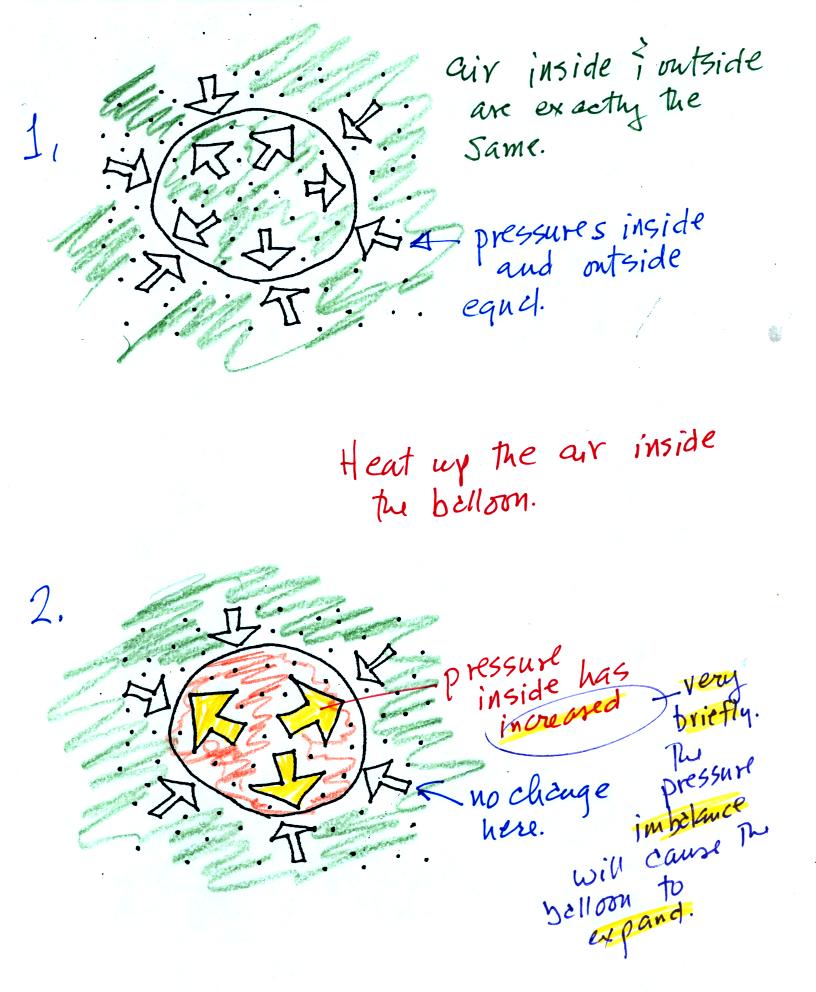 1.
air inside & outside
are exactly the
same.
pressures inside
and outside
equal.
Heat up the air inside
the balloon.
2.
pressure
inside has
increased
very
briefly.
The
pressure
imbalance
will cause the
balloon to
expand.
no change
here.